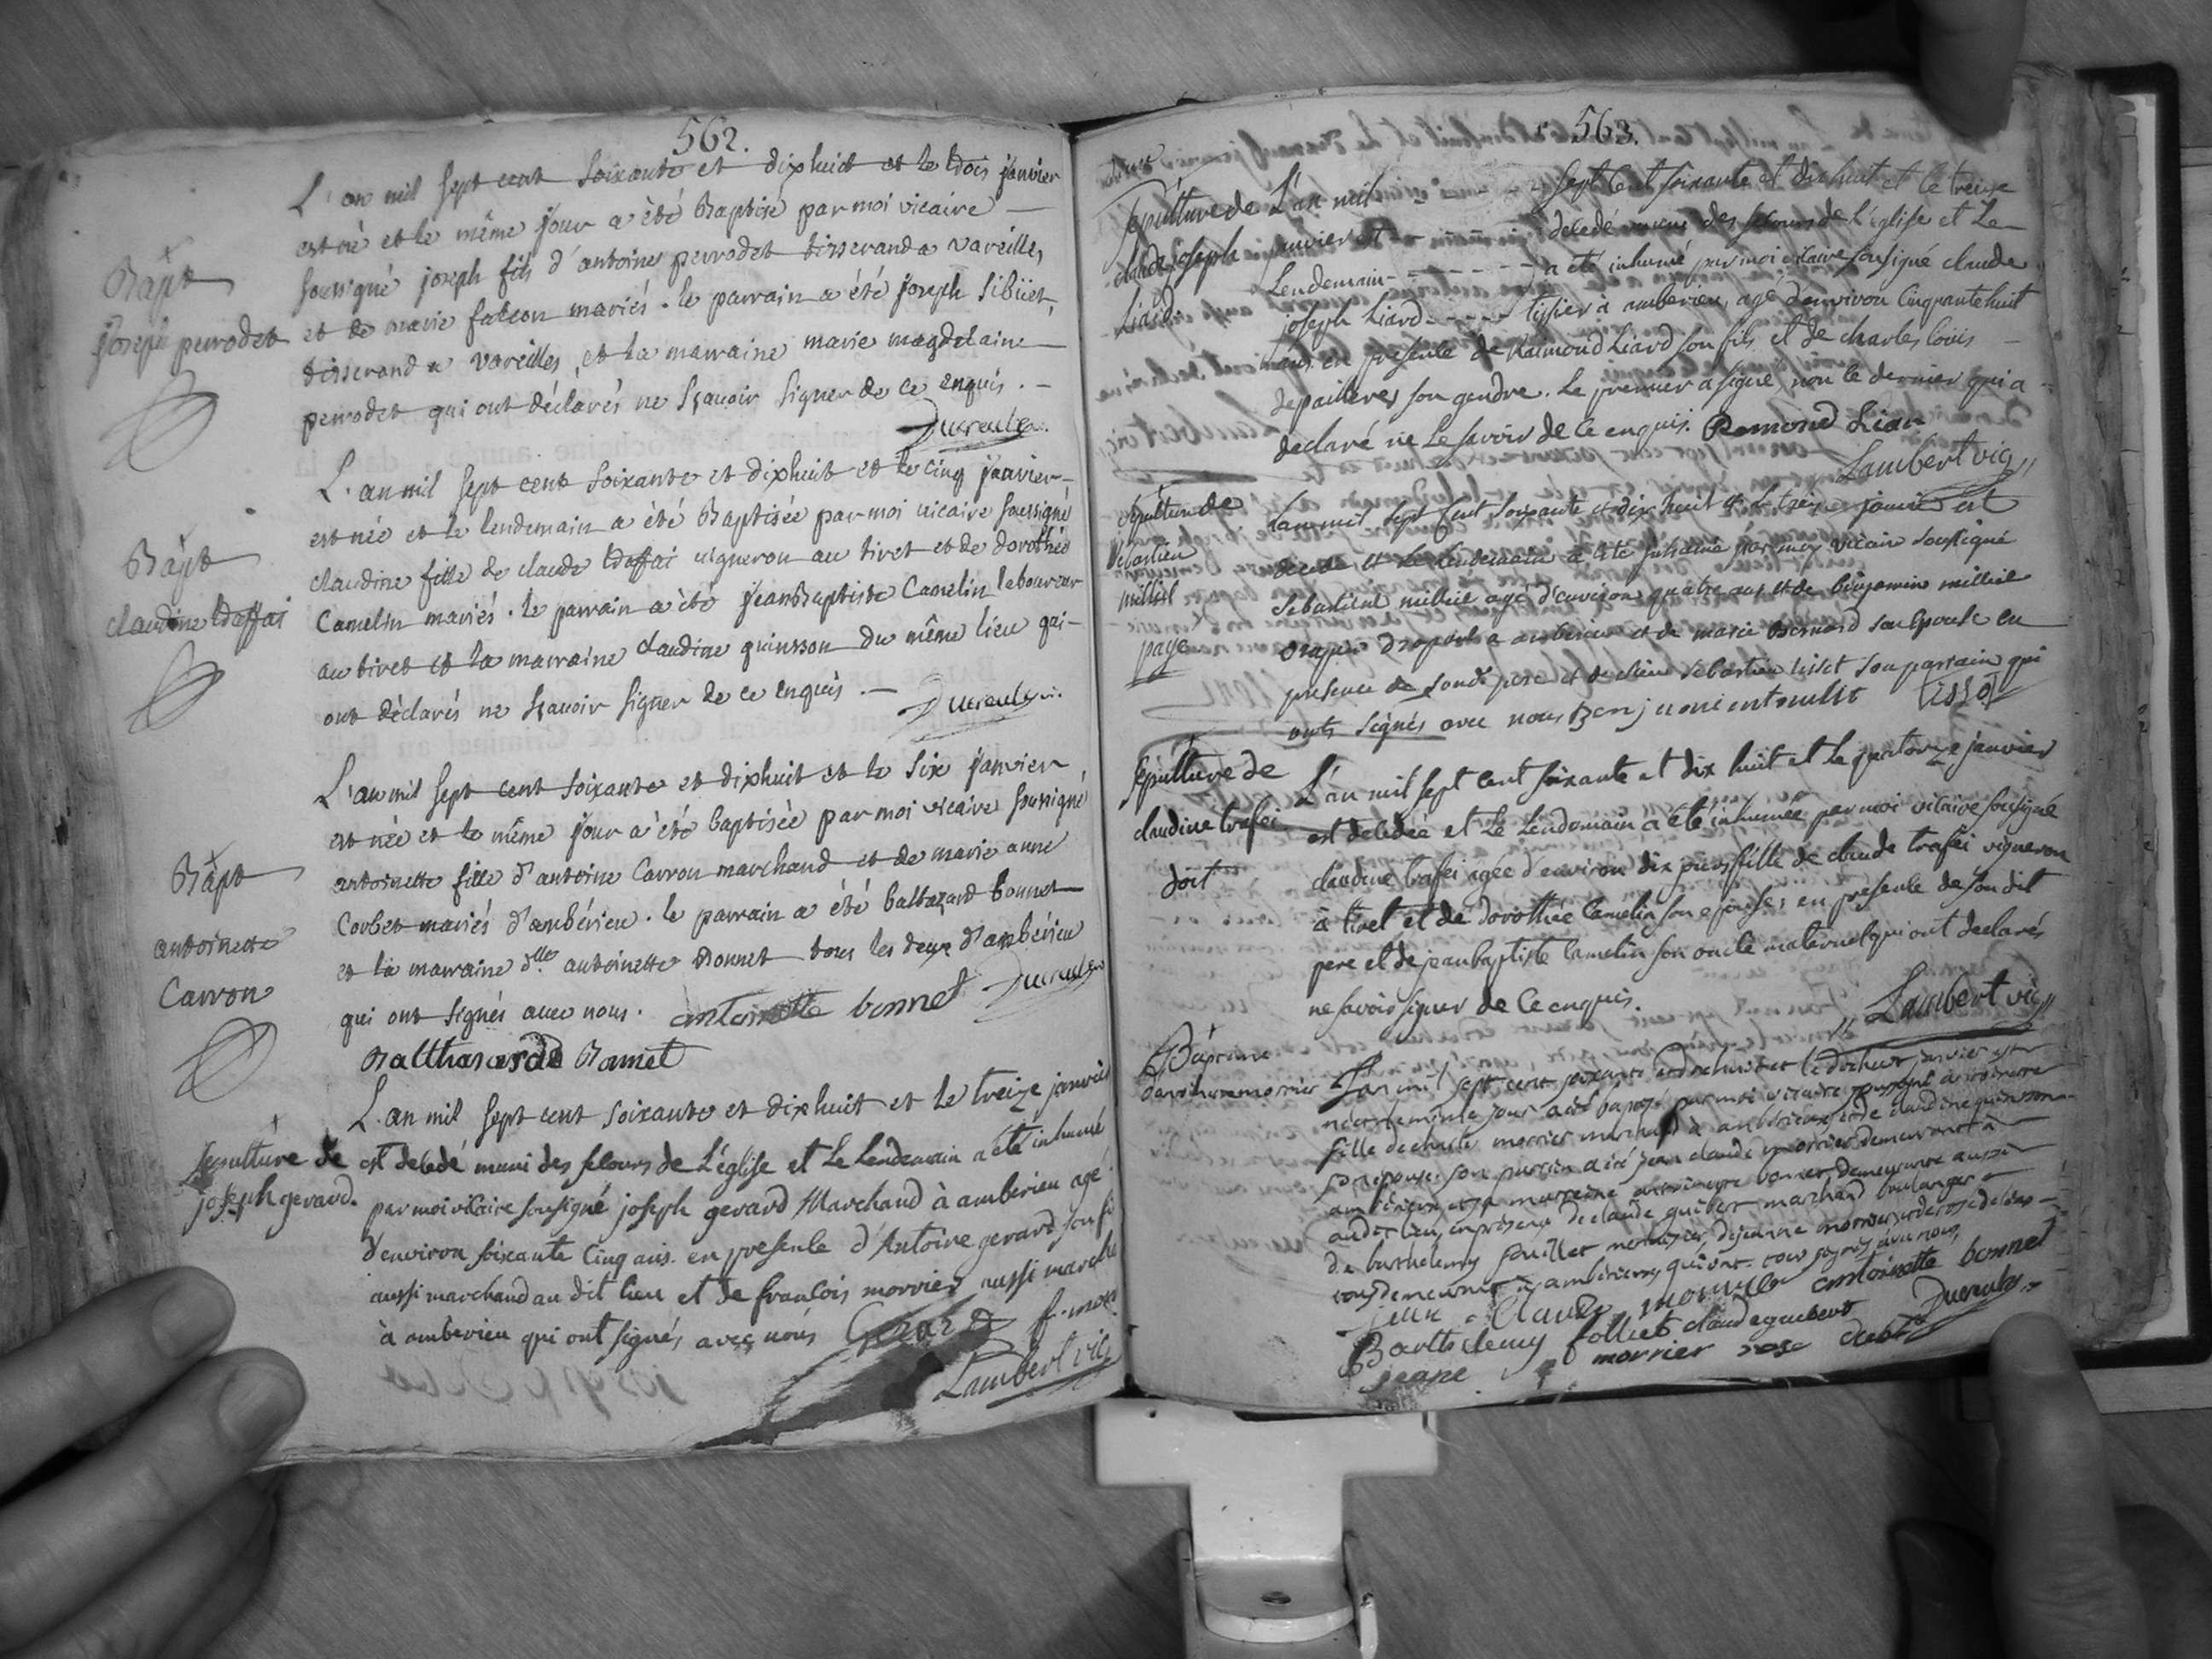 562.
L'an mil sept cent soixante et dixhuit et le trois janvier
est né et le même jour a été Baptisé par moi vicaire —
Bapt
soussigné joseph fils d'antoine perrodet tisserand a vareilles,
joseph perrodet
et de marie falcon mariés. le parrain a été joseph sibüet,
tisserand a vareilles, et la marraine marie magdelaine
perrodet qui ont déclarés ne sçavoir signer de ce enquis. —
Ducreulx
L'an mil sept cent soixante et dixhuit et le cinq janvier
est née et le lendemain a été Baptisée par moi vicaire soussigné
Bapt
claudine fille de claude traffai vigneron au tiret et de dorothée
claudine traffai
Camelin mariés. le parrain a été jean Baptiste Camelin laboureur
au tiret et la marraine claudine quinsson du même lieu qui
ont déclarés ne sçavoir signer de ce enquis. —
Ducreulx
L'an mil sept cent soixante et dixhuit et le six janvier
est née et le même jour a été baptisée par moi vicaire soussigné
Bapt
antoinette fille d'antoine Carron marchand et de marie anne
antoinette
Corbet mariés d'ambérieu. le parrain a été baltazard bonnet
Carron
et la marraine dlle antoinette Bonnet tous les deux d'ambérieu
qui ont signés avec nous. antoinette bonnet Ducreulx
Balthazard Bonnet
L'an mil sept cent soixante et dixhuit et le treize janvier
Sepulture de
est decedé muni des secours de l'église et le lendemain a été inhumé
joseph gerard.
par moi vicaire sousigné joseph gerard Marchand à amberieu agé
d'environ soixante cinq ans. en presence d'Antoine gerard son fi
aussi marchand au dit lieu et de françois morrier aussi marcha
à amberieu qui ont signés avec nous Gerard f. mor
Lambert vic
563.
Sepulture de
claude joseph
Liard.
L'an mil sept cent soixante et dix huit et le treize
janvier est decedé muni des secours de l'église et le
lendemain a été inhumé par moi vicaire sousigné claude
joseph Liard tissier à amberieu, agé d'environ cinquante huit
ans en presence de Raimond Liard son fils et de charles louis
depailleres son gendre. Le premier a signé, non le dernier qui a
declaré ne le savoir de ce enquis. Remond Liar
Lambert vic
Sepulture de
Sebastien
milliet
paye
L'an mil sept cent soixante et dix huit et le treize janvier est
decedé et le lendemain a été inhumé par moy vicaire soussigné
Sebastien milliet agé d'environ quatre ans et de benjamin milliet
drapier a amberieu et de marie Bernard son epouse en
presence de sondt pere et de sebastien tisset son parrain qui
onts signés avec nous
Sepulture de
claudine trafei
doit
L'an mil sept cent soixante et dix huit et le quatorze janvier
est decedée et le lendemain a été inhumée par moi vicaire sousigné
claudine trafei agée d'environ dix jours fille de claude trafei vigneron
à tiret et de dorothée camelin son epouse; en presence de son dit
pere et de jean baptiste camelin son oncle maternel qui ont declarés
ne savoir signer de ce enquis.
Lambert vic
Bapteme
d'antoinette morrier
L'an mil sept cent soixante et dixhuit et le dixhuit janvier est
née et le même jour a été baptisée par moi vicaire soussigné antoinette
fille de charles morrier marchand à amberieux et de claudine quinson
son epouse. son parrain a été jean claude morrier demeurant à
amberieux et sa marraine antoinette bonnet demeurante aussi
audit lieu, en presence de claude guibert marchand boulanger
de barthelemy foulliet menuisier, de jeanne morrier et de rose
tous demeurant à amberieux qui ont tous signés avec nous
jean Claude morrier antoinette bonnet
Barthelemy folliet claude guibert Ducreulx
jeane morrier rose